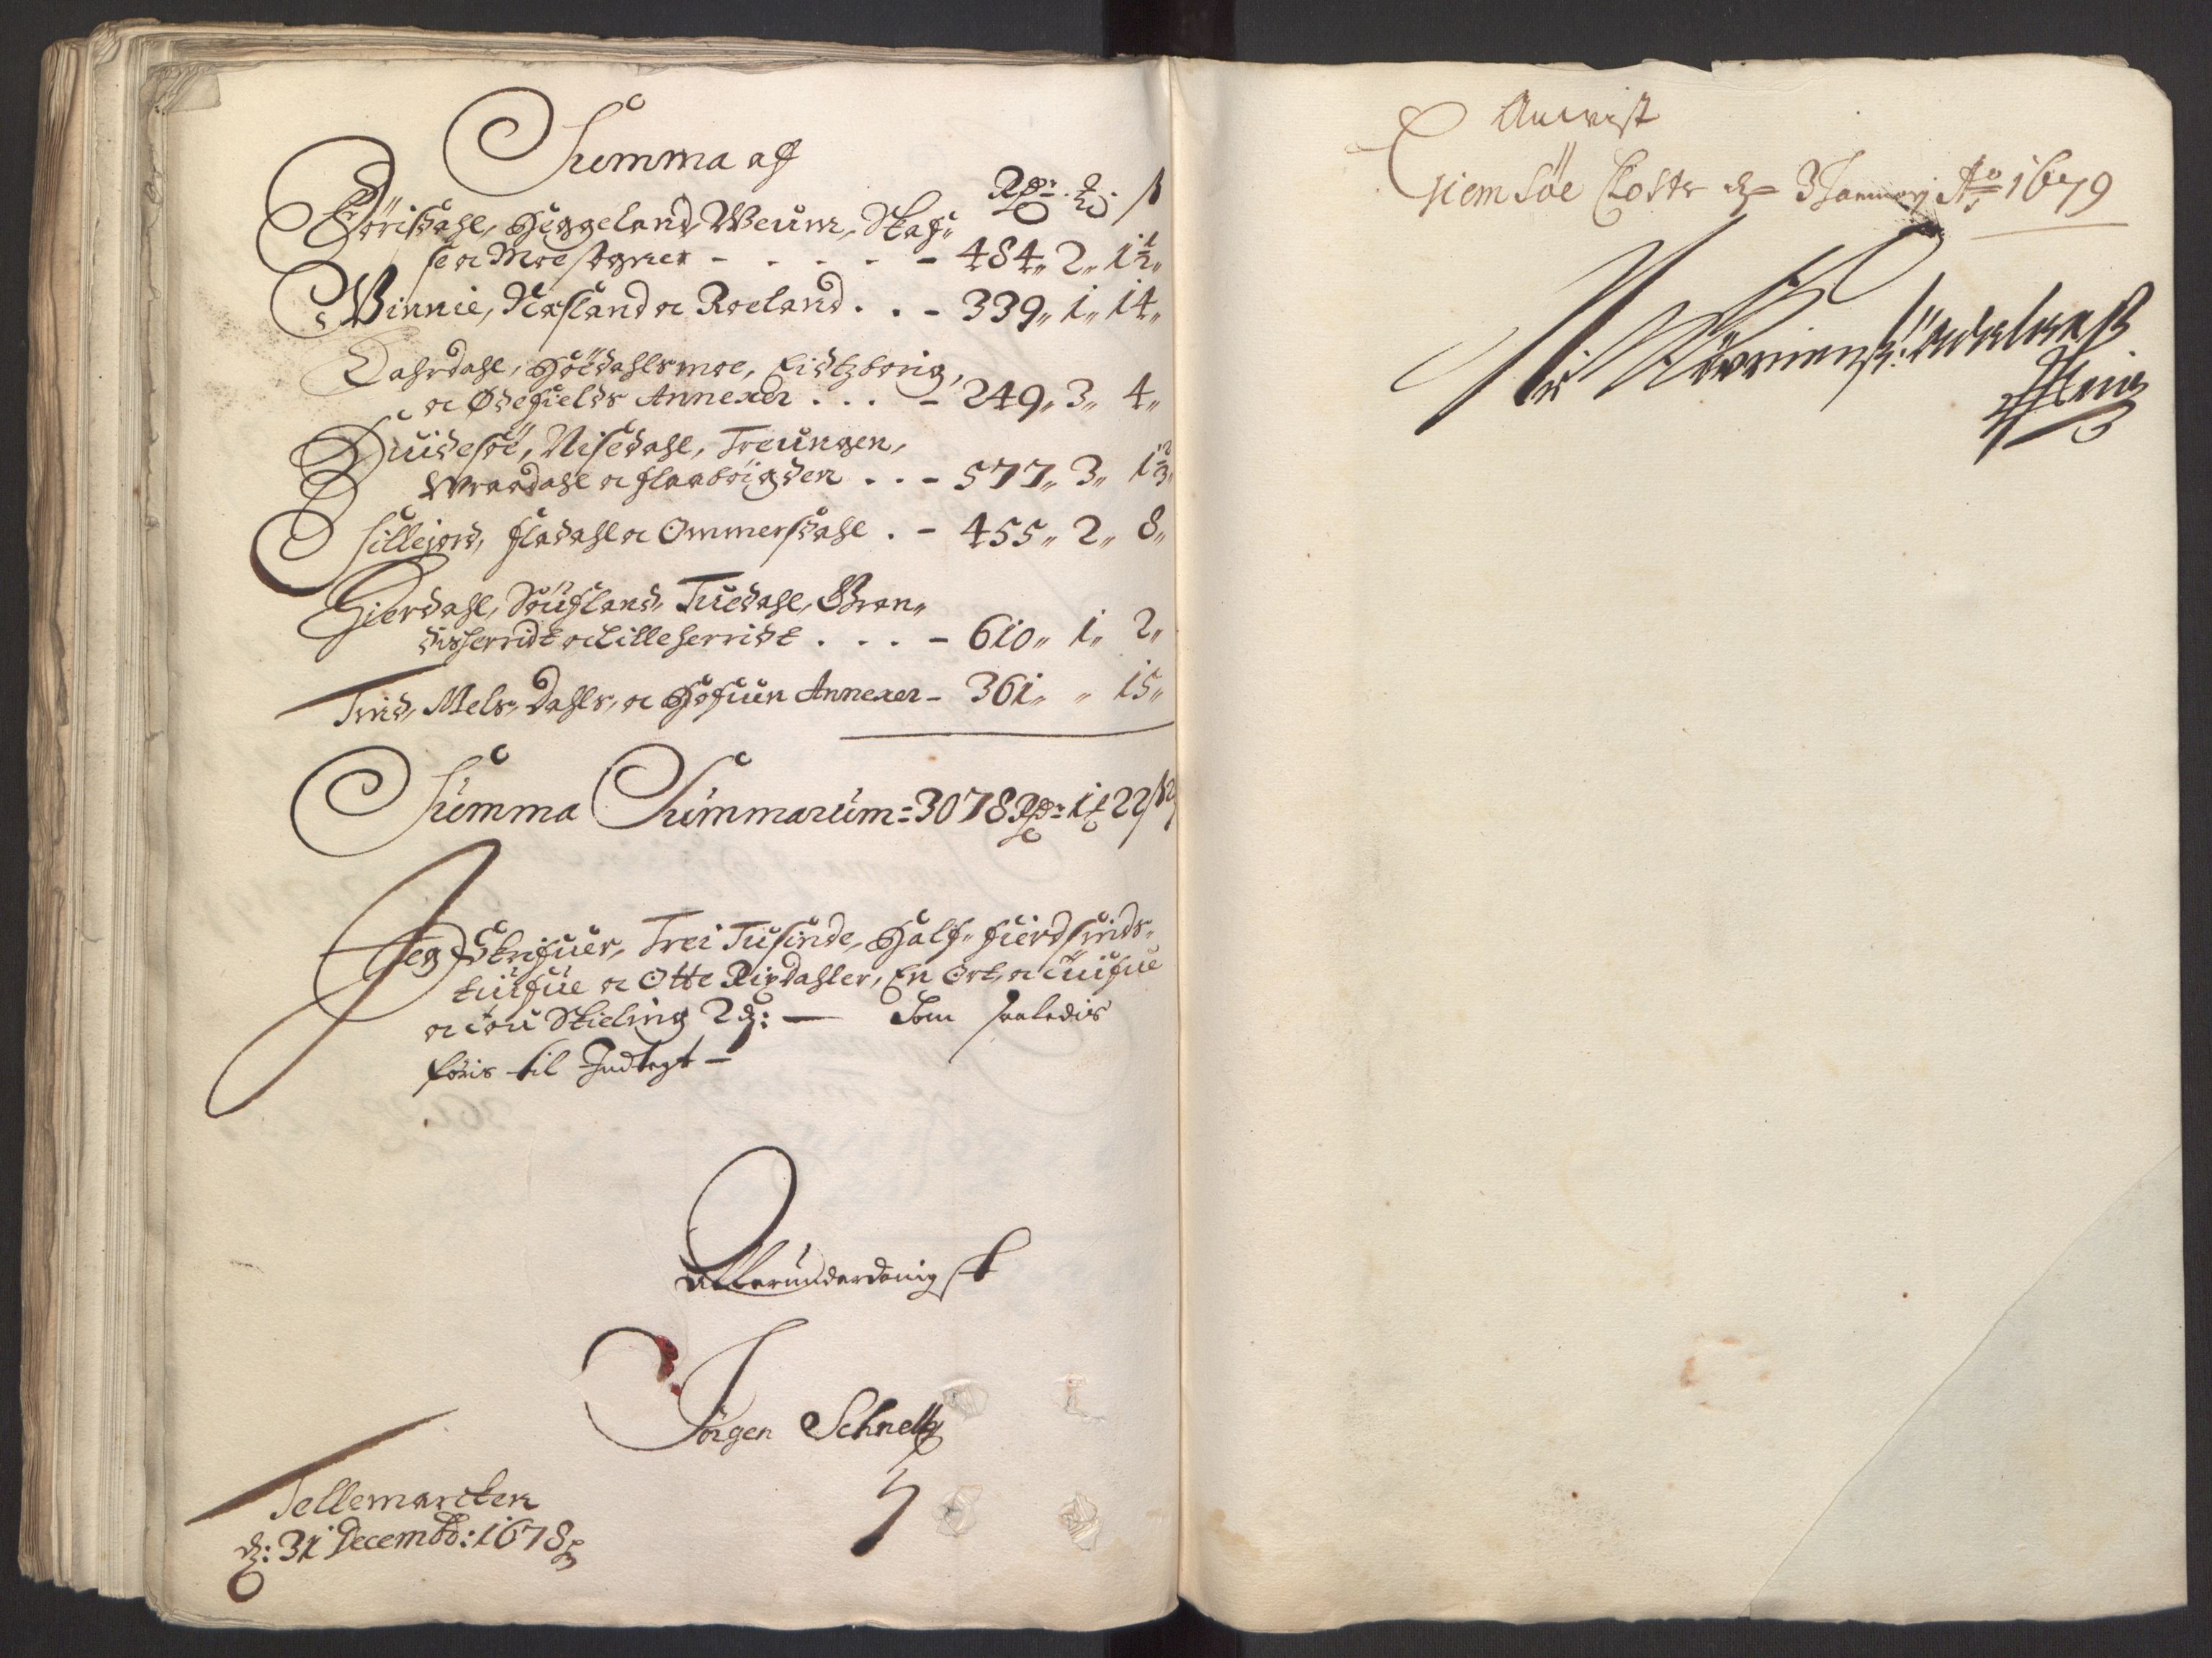 Summa af
Rdr. ort. ß
Förisdahl, Heggeland, Weum, Skaf„
se oc Moe sogner - . . . . - 484„ 2„ 1½„
Winnie, Nesland oc Roeland . . - 339„ 1„ 14„
Lahrdahl, Höedahlsmoe, Eidtzborig,
oc Ødefields Annexer . . . - 249„ 3„ 4„
Quidesöe, Nisedahl, Treungen,
Wraadahl oc Flaaböigden . . - 577„ 3„ 1⅔„
Sillejord, Fladahl oc Ommersdahl . - 455„ 2„ 8„
Hierdahl, Söufland, Tuedahl, Gran„
disherridt oc Lilleherridt . . . - 610„ 1„ 2„
Tind, Mels, Dahls, oc Hofuen Annexer - 361„ „ 15„
Summa Summarum = 3078 Rdr 1 ort 22 ß 2
Jeg Skrifuer, Trei Tusinde, Half„ fierdsinds„
tiufue oc Otte Rixdahler, En Ort, oc tiufue
oc tou Skieling 2 d: — Som saaledis
föris til Indtegt —
Allerunderdanigst
Jörgen Schnell
Tellemarcken
d: 31 Decemb: 1678
Anvist
Giemsöe Closter d 3 January Ao 1679